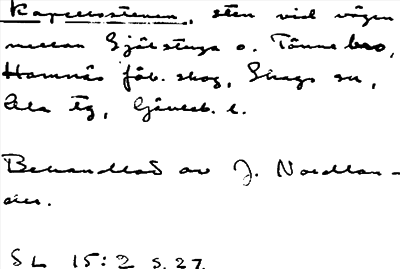 Kapellsstenen, sten vid vägen
mellan Sjålstuga o. Tönnebro,
Hamnäs föb. skog, Skogs sn,
Ala tg, Gävleb. l.
Behandlad av J. Nordlan-
der.
SL 15:2 s. 27.